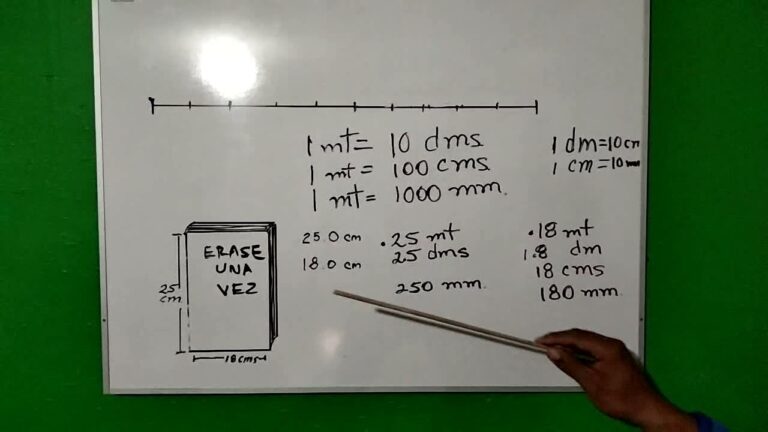 1 mt = 10 dms
1 mt = 100 cms
1 mt = 1000 mm.
1 dm = 10 cm
1 cm = 10 mm
ERASE
UNA
VEZ
25
cm
18 cms
25.0 cm
18.0 cm
.25 mt
25 dms
250 mm.
.18 mt
1.8 dm
18 cms
180 mm.